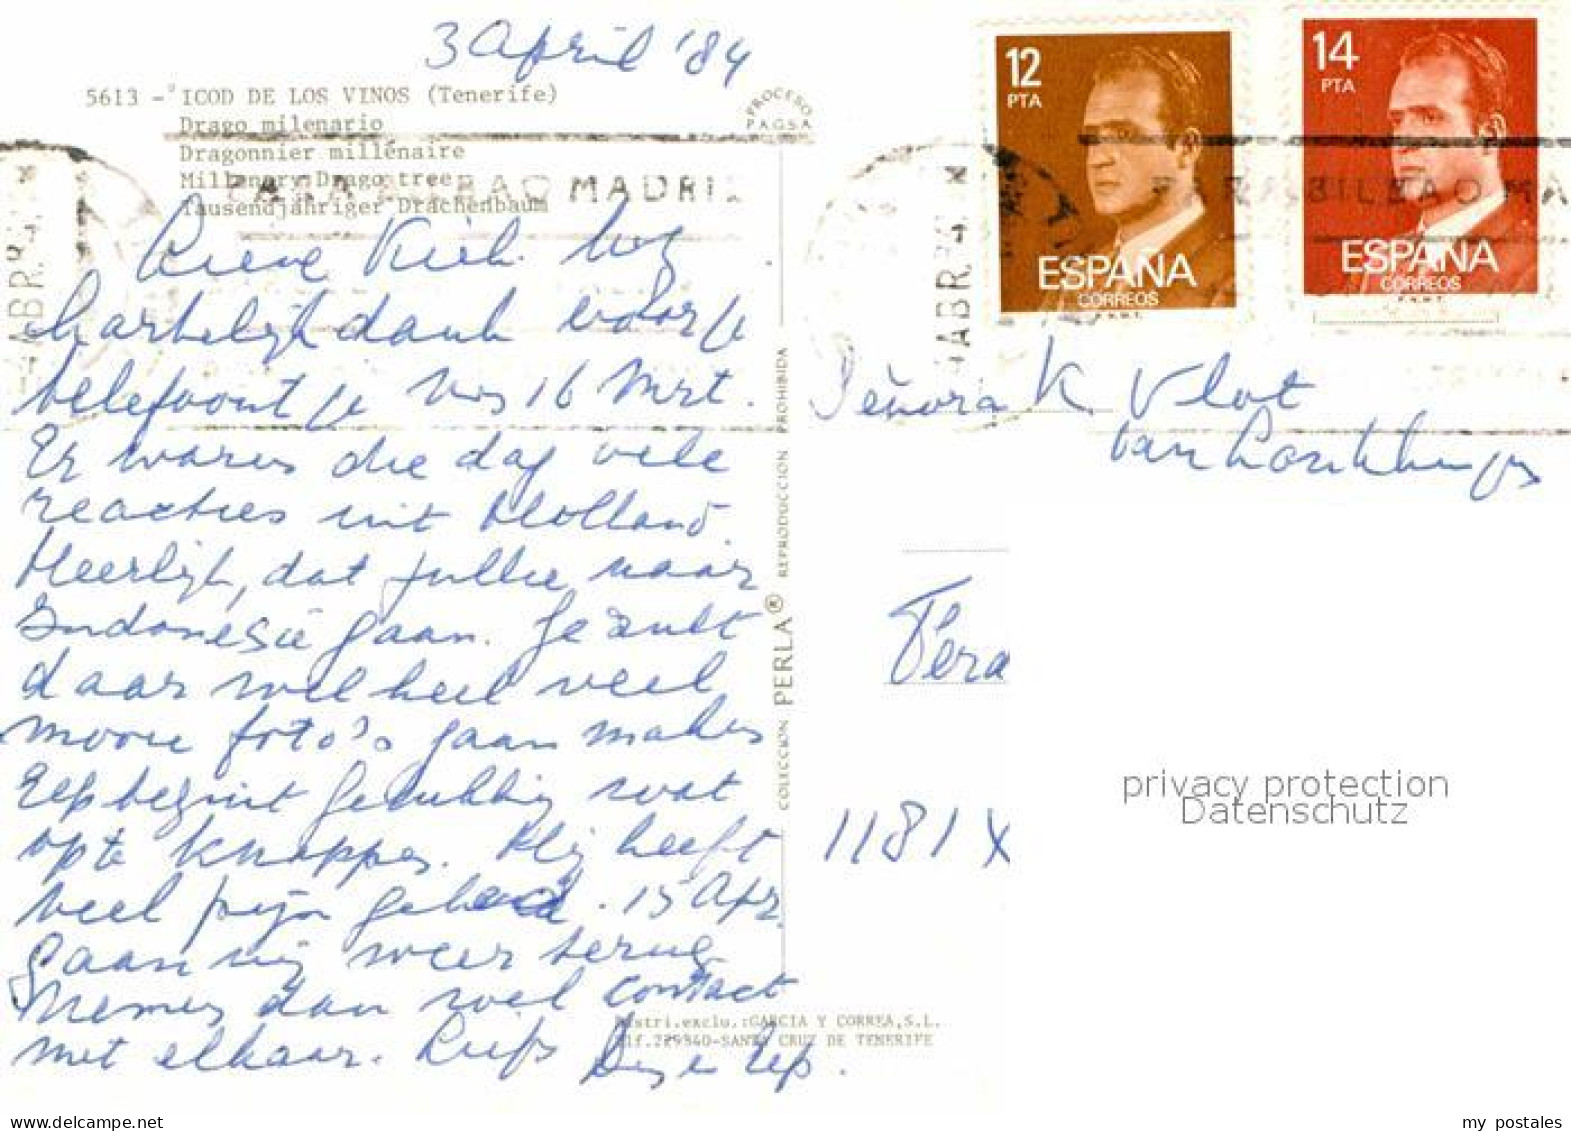 3 April '84
5613 - ICOD DE LOS VINOS (Tenerife)
Drago milenario
Dragonnier millénaire
Millenary Drago tree
Tausendjähriger Drachenbaum
PROCESO
PAGSA
MADRI
ABR.
12
PTA
ESPAÑA
CORREOS
F.N.M.T.
14
PTA
ESPAÑA
CORREOS
F.N.M.T.
ABR.
PARA BILBAO MA
Lieve Kieh. nog
hartelijk dank voor je
telefoontje van 16 Mrt.
Er waren die dag vele
reacties uit Holland.
Heerlijk, dat jullie naar
Indonesië gaan. Je zult
daar wel heel veel
mooie foto's gaan maken
Eep begint gelukkig wat
op te knappen. Hij heeft
veel pijn gehad. 15 Apr.
gaan wij weer terug
Nemen dan wel contact
met elkaar. Liefs
COLECCION PERLA® REPRODUCCION PROHIBIDA
Distri.exclu.:GARCIA Y CORREA,S.L.
Tlf.229840-SANTA CRUZ DE TENERIFE
Señora K. Vlot
van
1181 X
privacy protection
Datenschutz
my postales